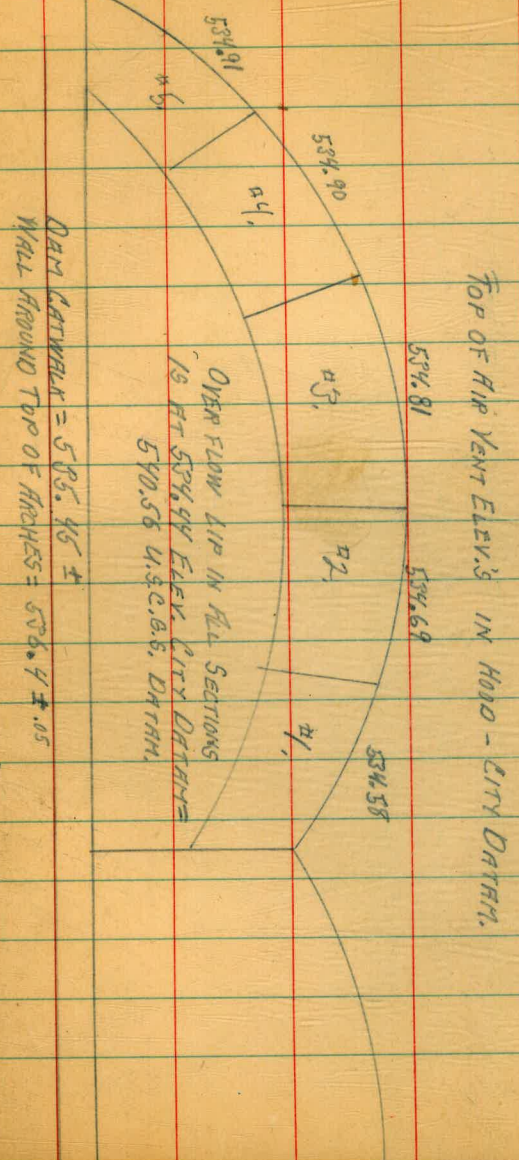 TOP OF AIR VENT ELEV.'S IN HOOD - CITY DATAM.
534.91
534.90
534.81
534.69
534.58
#5.
#4.
#3.
#2.
#1.
OVERFLOW LIP IN ALL SECTIONS
IS AT 534.44 ELEV. CITY DATAM=
540.56 U.S.C.&G. DATAM.
DAM CATWALK = 535.45 ±
WALL AROUND TOP OF ARCHES = 536.4 ± .05